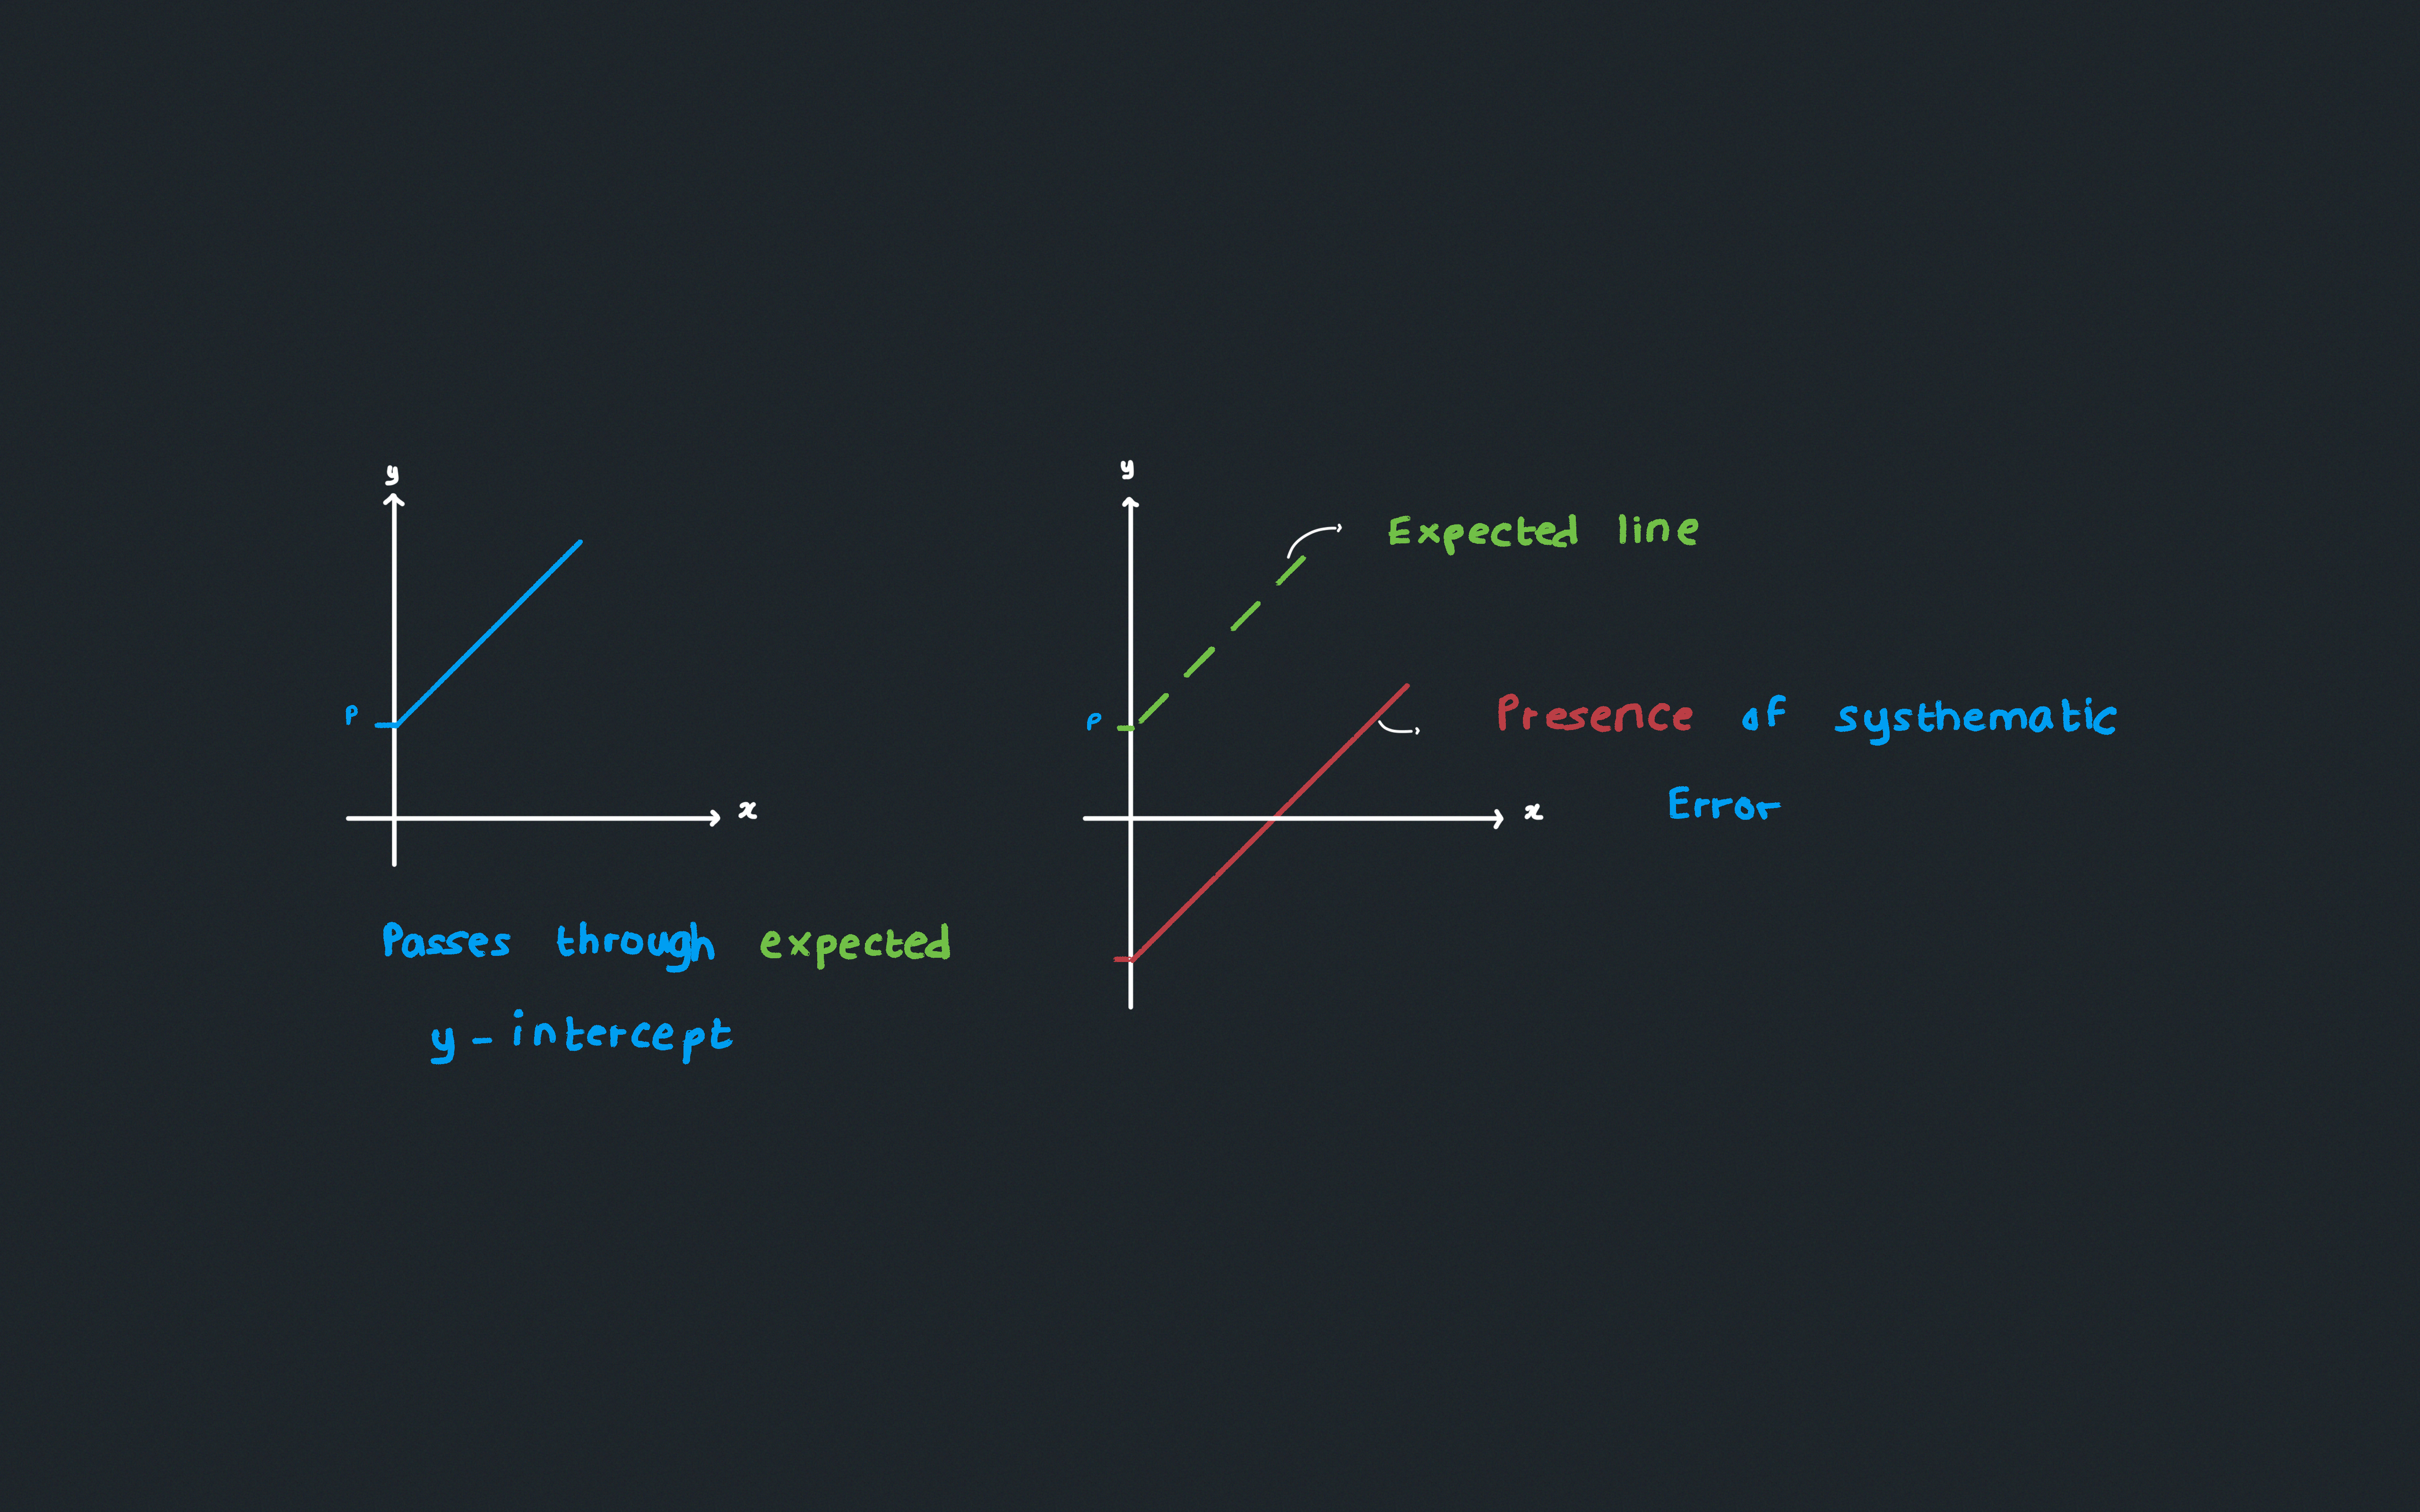 y
P
x
Passes through expected
y-intercept
y
Expected line
P
Presence of systhematic
Error
x